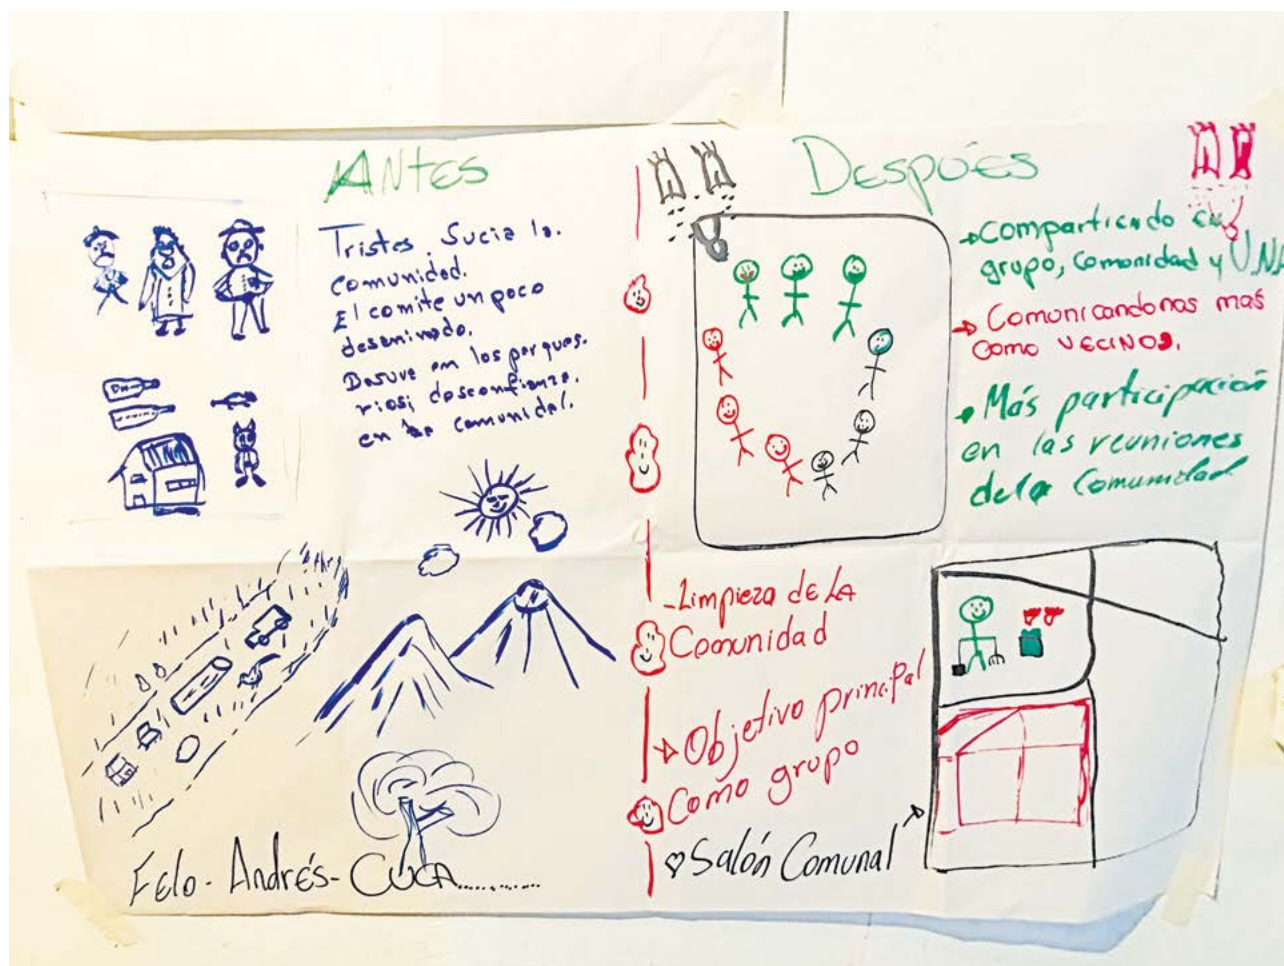 ANtes
Tristes. Sucia la.
comunidad.
El comite un poco
desanimado.
Basura en los parques.
rios; desconfianza.
en la comunidad.
Felo - Andrés - CUCA..........
DESPÚES
Compartiendo en
grupo, Comonidad y UNA
Comunicandonos mas
Como VECINOS.
Más participación
en las reuniones
de la Comunidad
- Limpieza de LA
Comunidad
Objetivo principal
Como grupo
Salón Comunal